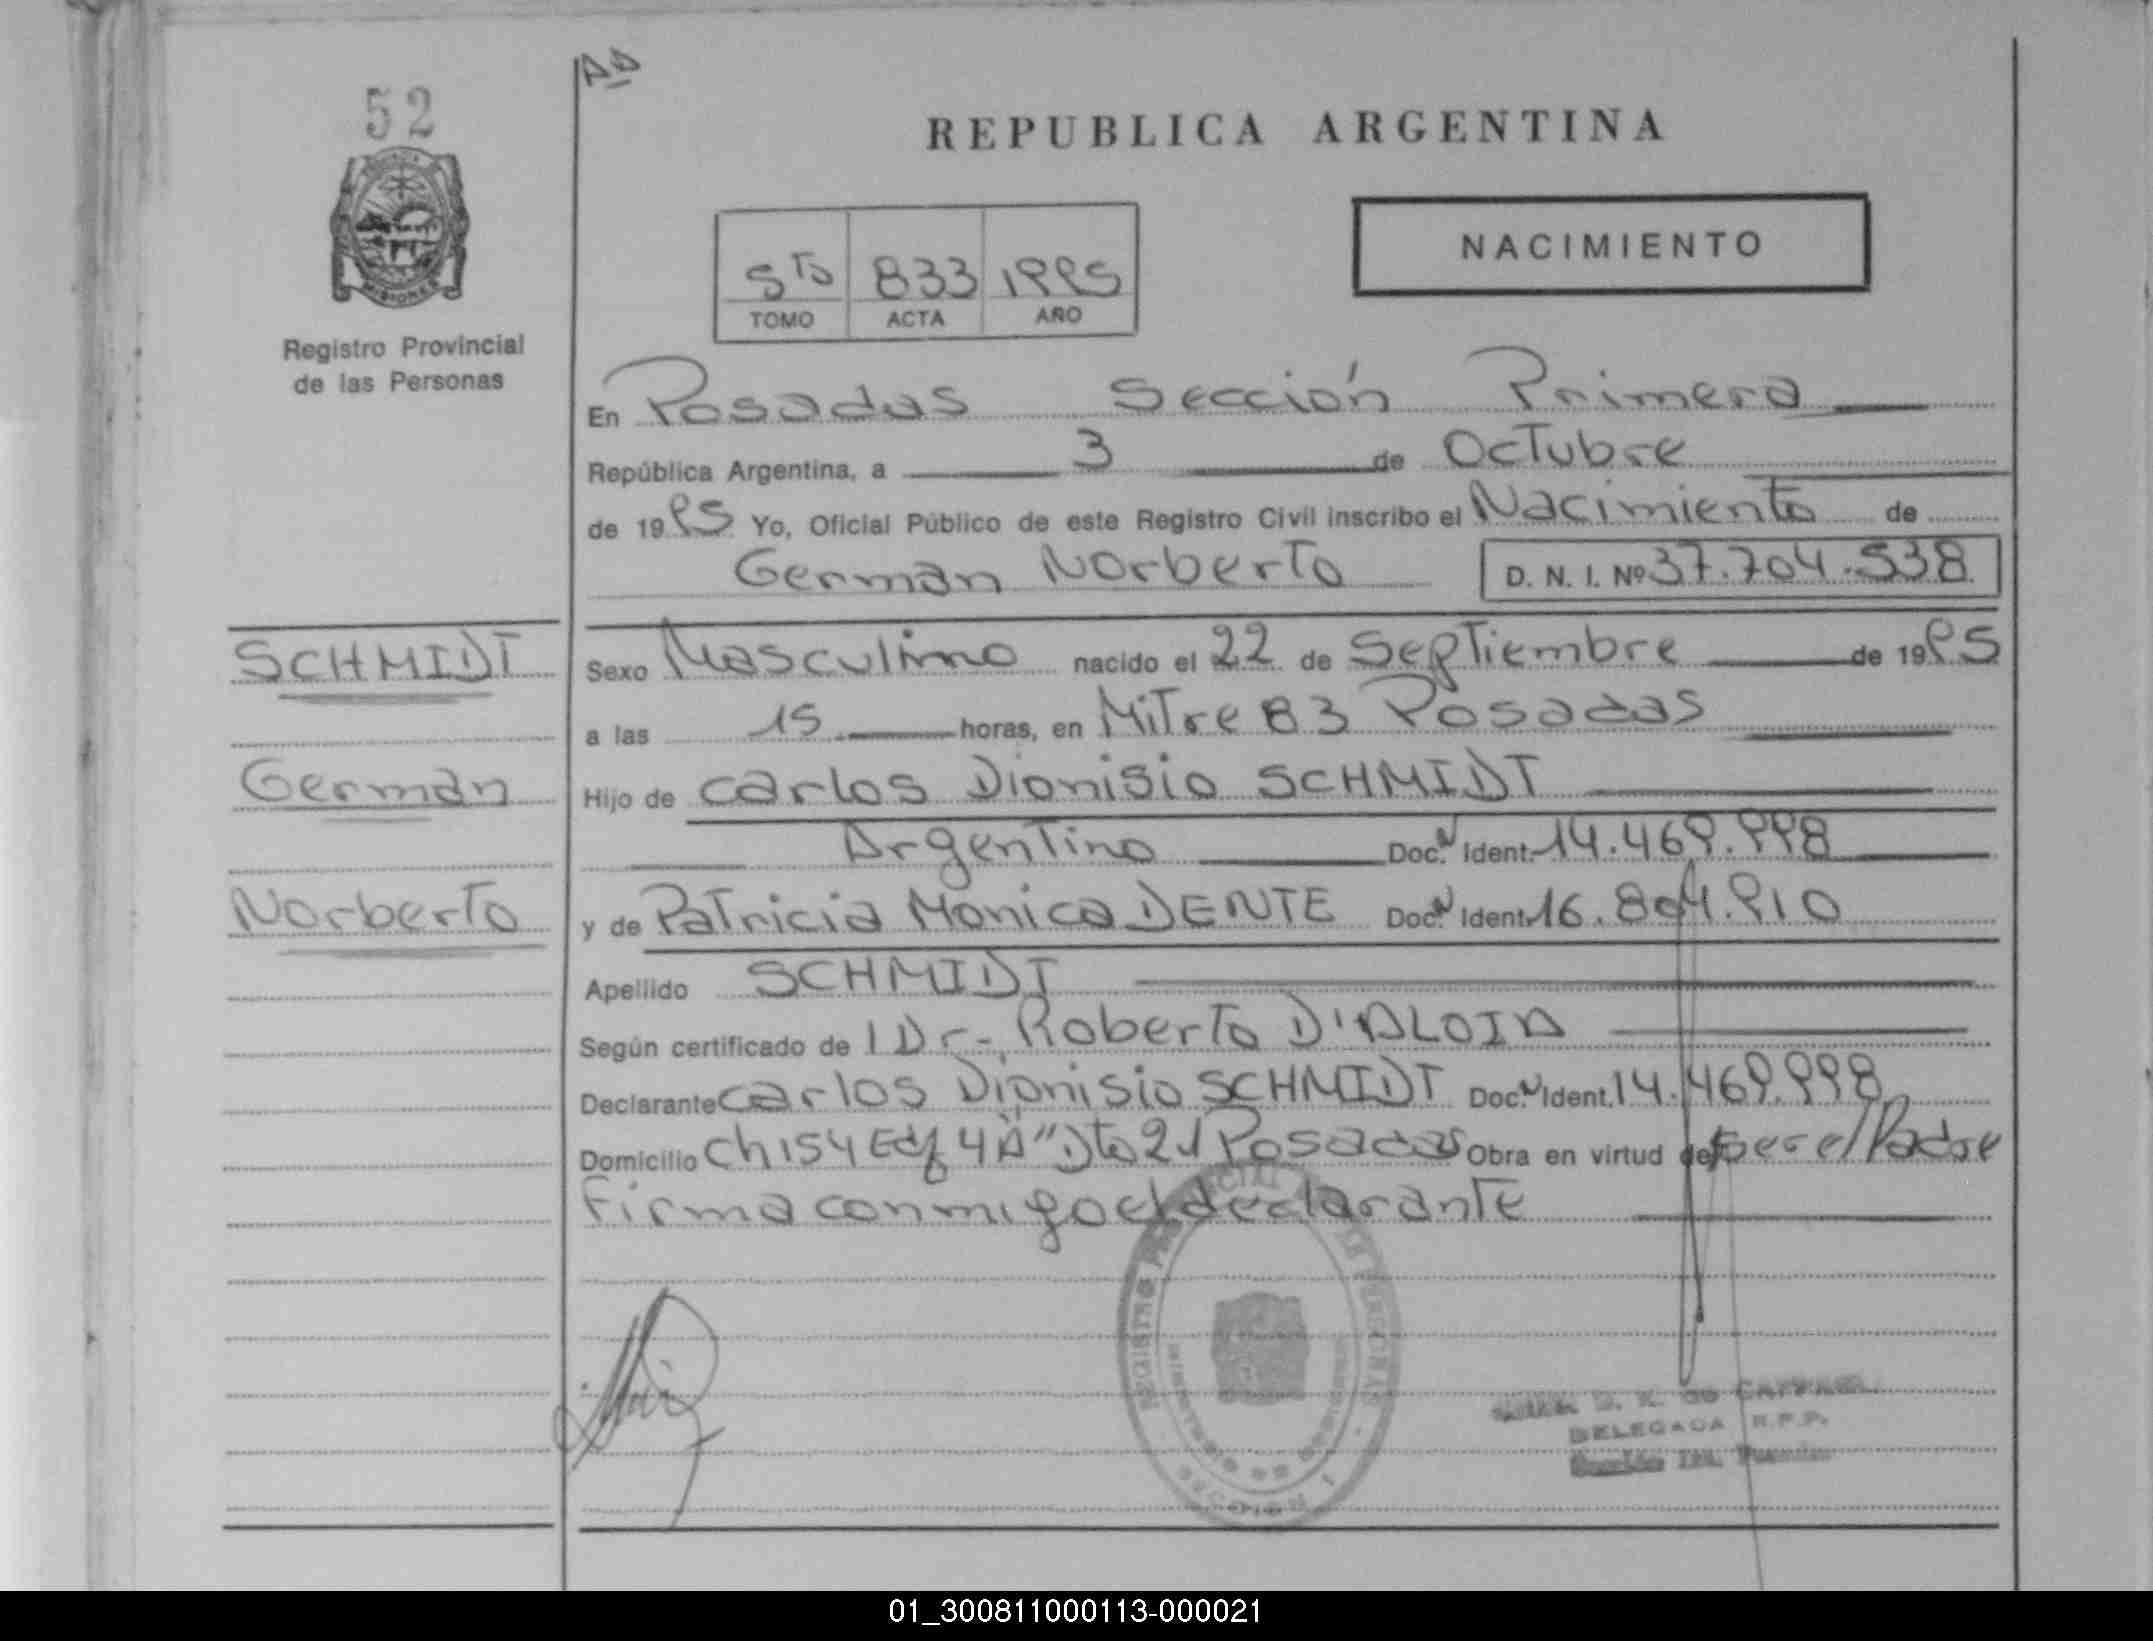 52
AD
REPUBLICA ARGENTINA
NACIMIENTO
5to 833 1995
TOMO ACTA AÑO
MISIONES
Registro Provincial
de las Personas
En Posadas Sección Primera
República Argentina, a 3 de Octubre
de 1995 Yo, Oficial Público de este Registro Civil inscribo el Nacimiento de
German Norberto D. N. I. Nº 37.704.538
SCHMIDT
German
Norberto
Sexo Masculino nacido el 22 de Septiembre de 1995
a las 15 horas, en Mitre 83 Posadas
Hijo de Carlos Dionisio SCHMIDT
Argentino Doc. N Ident. 14.469.998
y de Patricia Monica DENTE Doc. N Ident. 16.804.910
Apellido SCHMIDT
Según certificado de l Dr. Roberto D'ALOIA
Declarante Carlos Dionisio SCHMIDT Doc. N Ident. 14.469.998
Domicilio Ch 154 Edf 4 "A" Dto 21 Posadas Obra en virtud de ser el Padre
Firma conmigo el declarante
DELEGADA R.P.P.
01_300811000113-000021